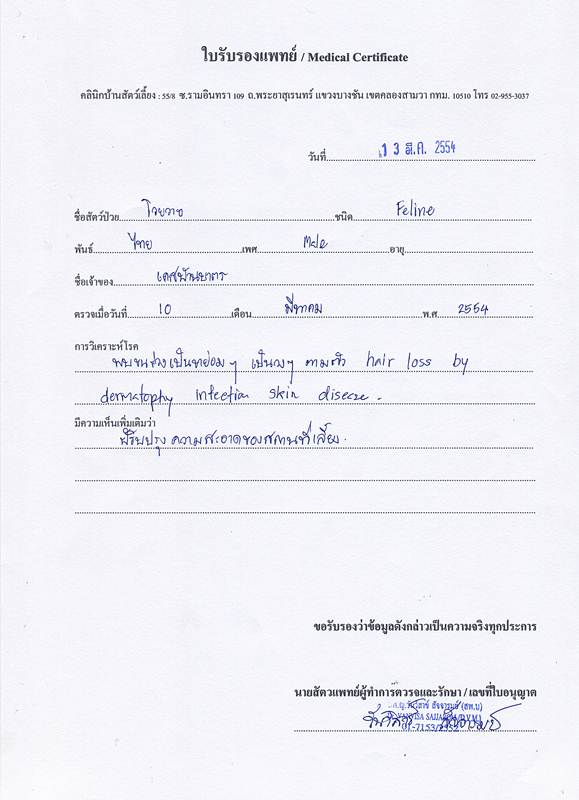 ใบรับรองแพทย์ / Medical Certificate
คลินิกบ้านสัตว์เลี้ยง : 55/8 ซ.รามอินทรา 109 ถ.พระยาสุเรนทร์ แขวงบางชัน เขตคลองสามวา กทม. 10510 โทร 02-955-3037
วันที่ 13 มี.ค. 2554
ชื่อสัตว์ป่วย ชนิด Feline
พันธ์ ไทย เพศ Male อายุ
ชื่อเจ้าของ
ตรวจเมื่อวันที่ 10 เดือน มีนาคม พ.ศ 2554
การวิเคราะห์โรค
พบขนร่วงเป็นหย่อมๆ เป็นวงๆ ตามตัว hair loss by
dermatophy infection skin disease.
มีความเห็นเพิ่มเติมว่า
ปรับปรุงความสะอาดของสถานที่เลี้ยง.
ขอรับรองว่าข้อมูลดังกล่าวเป็นความจริงทุกประการ
นายสัตวแพทย์ผู้ทำการตวรจและรักษา / เลขที่ใบอนุญาต
01-7153/2552